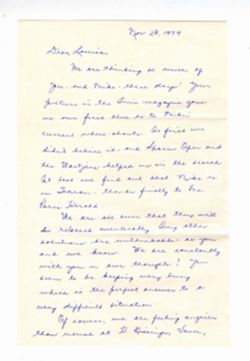 Nov 28, 1979
Dear Louisa
We are thinking so much of
you and Mike these days! Your
picture in the Time magazine gave
us our first clue as to Mike's
current where-abouts. At first we
didn't believe it and
helped us in the search
At last we find out that Mike is
in Teheran thanks finally to the
Paris Herald.
We are all sure that they will
be released eventually. Any other
solutions are unthinkable as you
and we know. We are constantly
with you in our thoughts! You
seem to be keeping very busy
which is the perfect answer to a
very difficult situation.
Of course, we are feeling angrier
than usual at